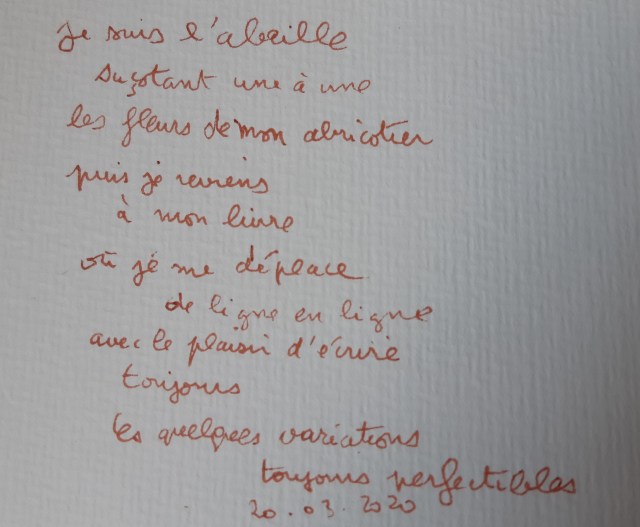 je suis l'abeille
suçotant une à une
les fleurs de mon abricotier
puis je reviens
à mon livre
où je me déplace
de ligne en ligne
avec le plaisir d'écrire
toujours
les quelques variations
toujours perfectibles
20.03.2020